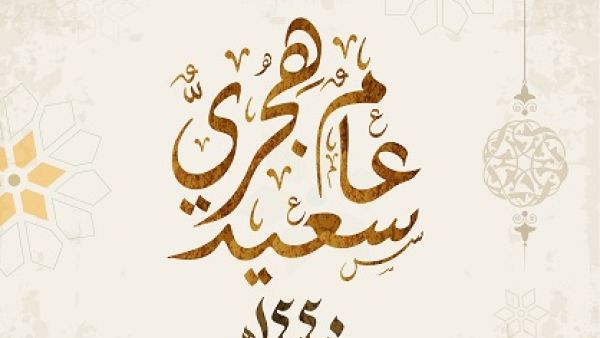 عامٌ هِجْريٌّ
سعيد
١٤٤٠هـ